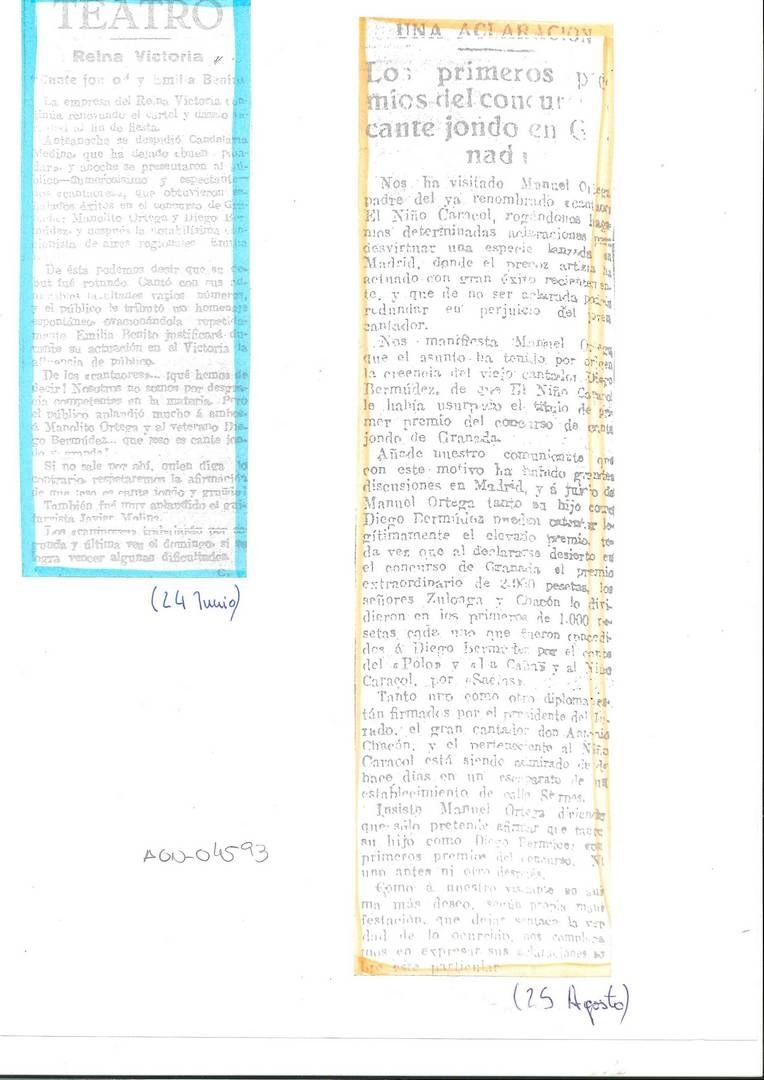 TEATRO
Reina Victoria
y Emilia Benito
La empresa del Reina Victoria
renovando el cartel y
al fin de fiesta.
Anteanoche se despidió
Medina, que ha dejado «buen
y anoche se presentaron al
—numerosísimo y
«cantaores», que obtuvieron
éxitos en el concurso de
Manolito Ortega y Diego
y después la notabilísima
de aires regionales
De ésta podemos decir que su
fué rotundo. Cantó con sus
varios números,
y el público le tributó un homenaje
espontáneo ovacionándola
Emilia Benito justificará
su actuación en el Victoria la
afluencia de público.
De los «cantaores»... ¡qué hemos de
decir! Nosotros no somos por
competentes en la materia. Pero
el público aplaudió mucho á ambos,
á Manolito Ortega y el veterano
Bermúdez... que «eso es cante
Si no sale por ahí, quien diga lo
contrario, respetaremos la afirmación
de que «eso es cante jondo y
También fué muy aplaudido el
Javier Molina.
Los «cantaores» trabajarán por
y última vez el domingo, si se
logra vencer algunas dificultades.
(24 Junio)
UNA ACLARACION
Los primeros
mios del concur
cante jondo en
Nos ha visitado Manuel Ortega
padre del ya renombrado «cantaor»
El Niño Caracol, rogándonos
determinadas aclaraciones
desvirtuar una especie lanzada en
Madrid, donde el precoz artista ha
actuado con gran éxito
te, y que de no ser aclarada podría
redundar en perjuicio del joven
cantador.
Nos manifiesta Manuel Ortega
que el asunto ha tenido por origen
la creencia del viejo cantador Diego
Bermúdez, de que El Niño Caracol
le había usurpado el título de
mer premio del concurso de cante
jondo de Granada.
Añade nuestro comunicante que
con este motivo ha habido grandes
discusiones en Madrid, y á juicio de
Manuel Ortega tanto su hijo como
Diego Bermúdez pueden ostentar
gítimamente el elevado premio,
da vez que al declararse desierto en
el concurso de Granada el premio
extraordinario de 2.000 pesetas, los
señores Zuloaga y Chacón lo divi-
dieron en los primeros de 1.000 pe-
setas cada uno que fueron concedi-
dos á Diego Bermúdez por el cante
del «Polo» y «La Caña» y al Niño
Caracol, por «Saetas».
Tanto uno como otro diploma es-
tán firmados por el presidente del Ju-
rado, el gran cantador don Antonio
Chacón, y el perteneciente al Niño
Caracol está siendo admirado desde
hace días en un escaparate de un
establecimiento de calle Sierpes.
Insiste Manuel Ortega diciendo
que sólo pretende afirmar que tanto
su hijo como Diego Bermúdez son
primeros premios del concurso. Ni
uno antes ni otro después.
Como á nuestro visitante no
ma más deseo, según propia mani-
festación, que dejar sentada la ver-
dad de lo ocurrido, nos complace-
mos en expresar sus aclaraciones so-
bre este particular.
(25 Agosto)
AGN-04593